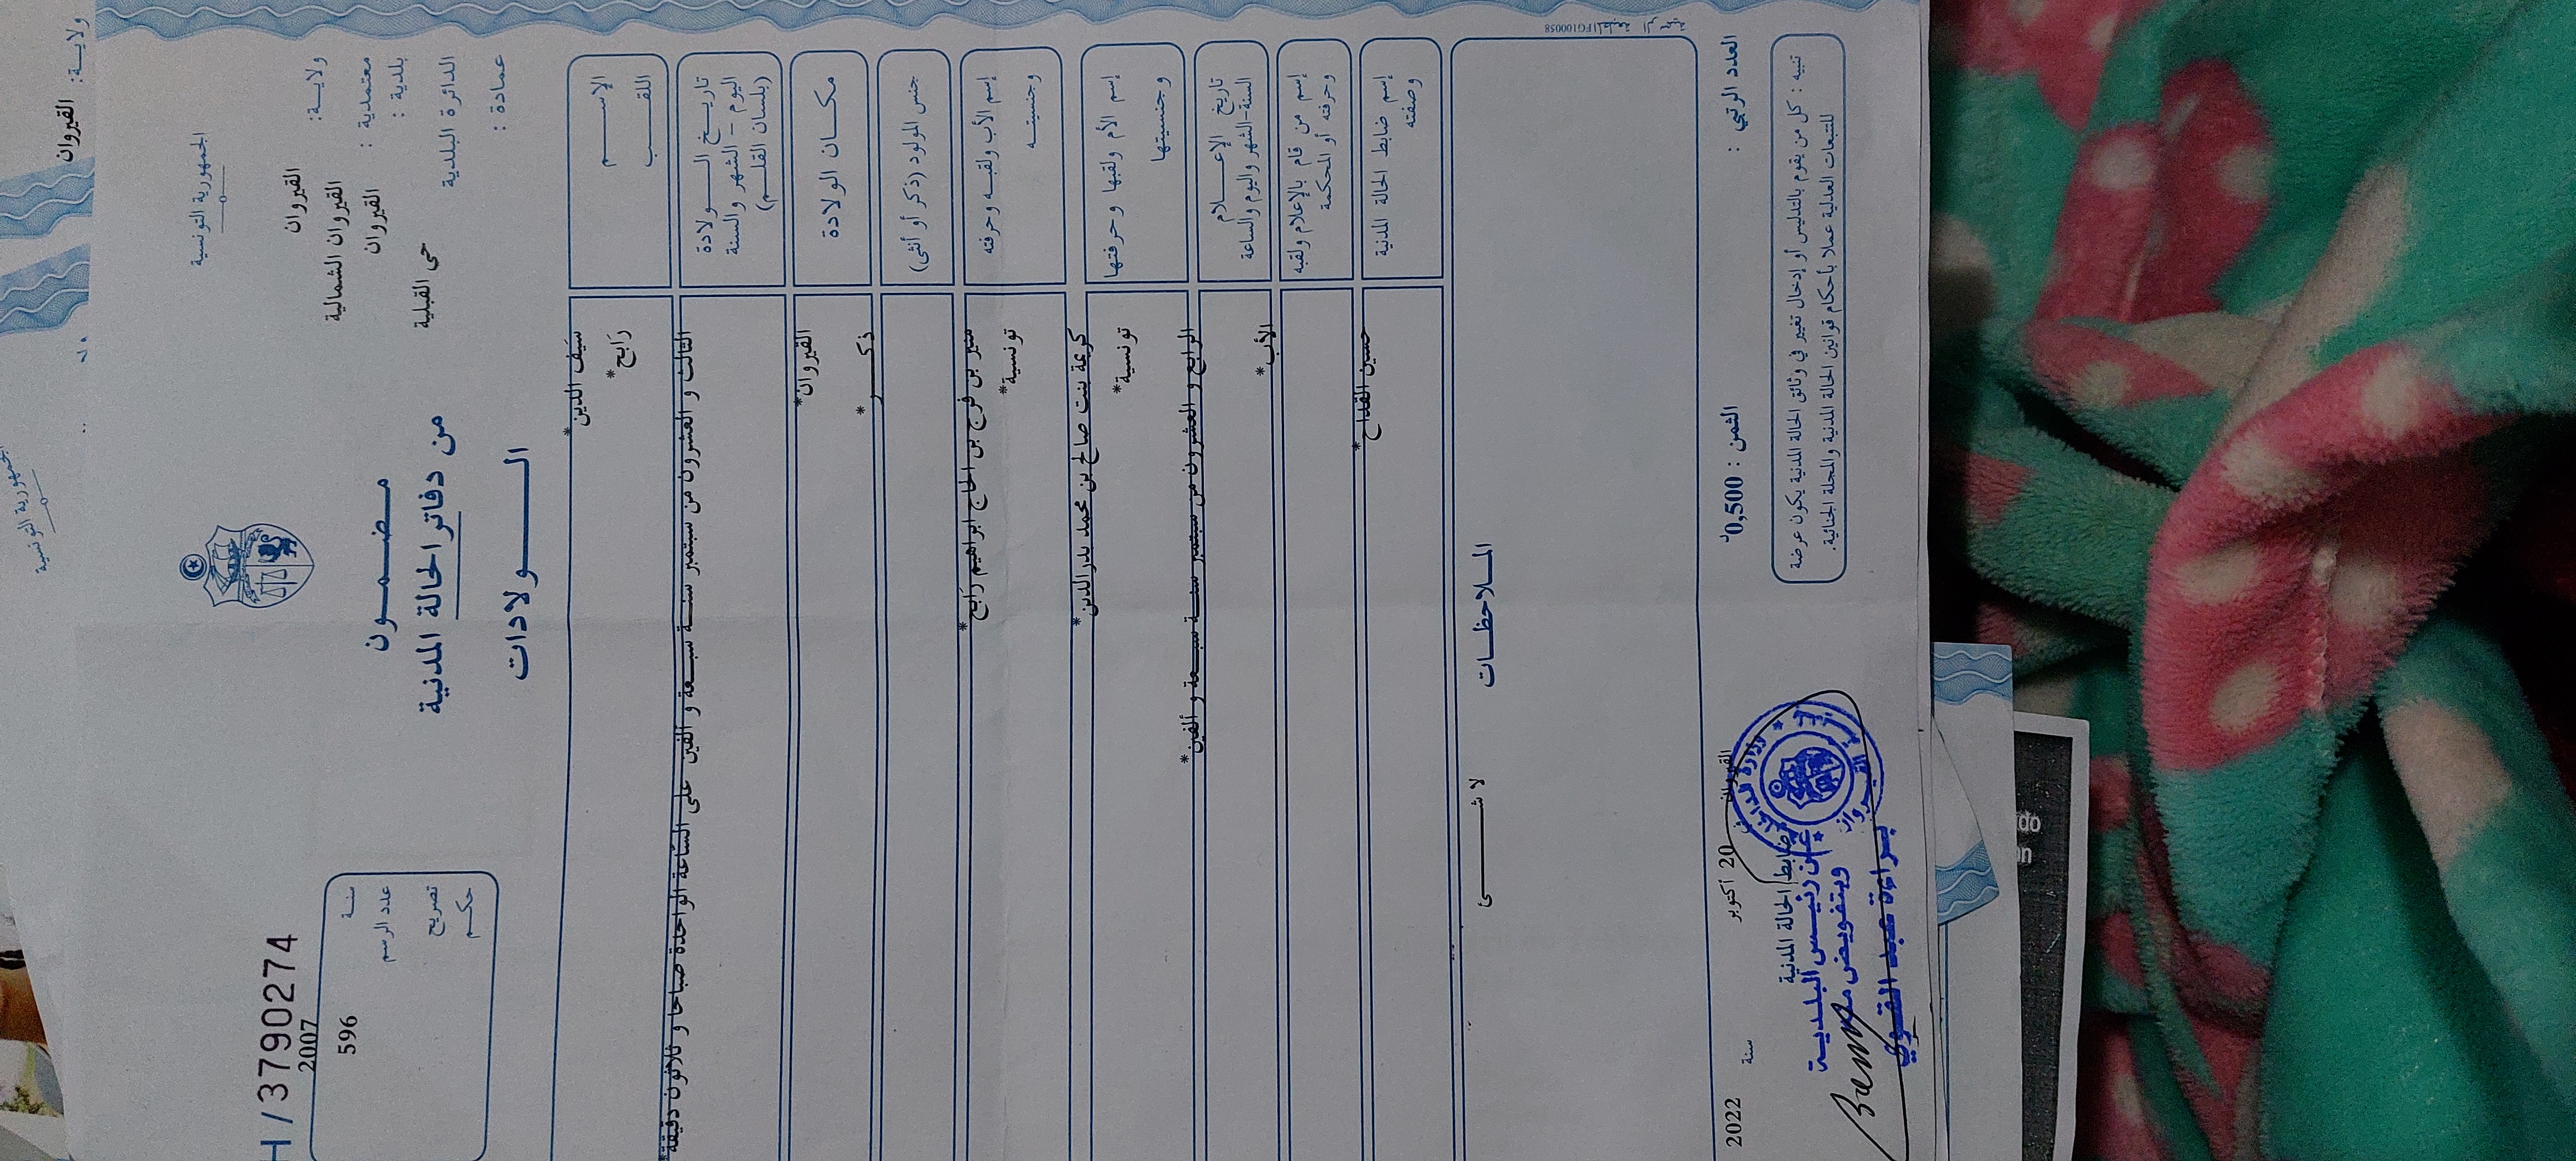 الجمهورية التونسية
ولاية: القيروان
معتمدية : القيروان الشمالية
بلدية : القيروان
الدائرة البلدية حي القبلية
عمادة :
مضمون
من دفاتر الحالة المدنية
الولادات
H / 3790274
سنة 2007
عدد الرسم 596
تصريح
حكم
الإسم سيف الدين*
اللقب رابح*
تاريخ الولادة
اليوم - الشهر والسنة
(بلسان القلم)
الثالث و العشرون من سبتمبر سنة سبعة و ألفين على الساعة الواحدة صباحا و ثلاثون دقيقة*
مكان الولادة القيروان*
جنس المولود (ذكر أو أنثى) ذكر*
إسم الأب ولقبه وحرفته منير بن فرج بن الحاج ابراهيم رابح*
وجنسيته تونسية*
إسم الأم ولقبها وحرفتها كريمة بنت صالح بن محمد بدر الدين*
وجنسيتها تونسية*
تاريخ الإعلام
السنة-الشهر واليوم والساعة
الرابع و العشرون من سبتمبر سنة سبعة و ألفين*
إسم من قام بالإعلام ولقبه
وحرفته أو المحكمة
الأب*
إسم ضابط الحالة المدنية
وصفته
حسين القداح*
الملاحظات
لا شئ
المطبعة الرسمية FG100058
العدد الرتبي :
الثمن : 0,500د
القيروان في 20 أكتوبر سنة 2022
ضابط الحالة المدنية
عن رئيس البلدية
وبتفويض منه
براءة عبد القوي
تنبيه : كل من يقوم بالتدليس أو إدخال تغيير في وثائق الحالة المدنية يكون عرضة
للتتبعات العدلية عملا بأحكام قوانين الحالة المدنية والمجلة الجنائية.
ولاية: القيروان
الجمهورية التونسية